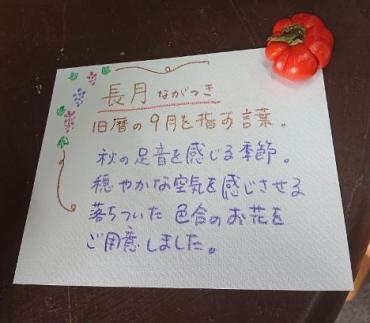 長月 ながつき
旧暦の9月を指す言葉。
秋の足音を感じる季節。
穏やかな空気を感じさせる
落ちついた 色合のお花を
ご用意しました。